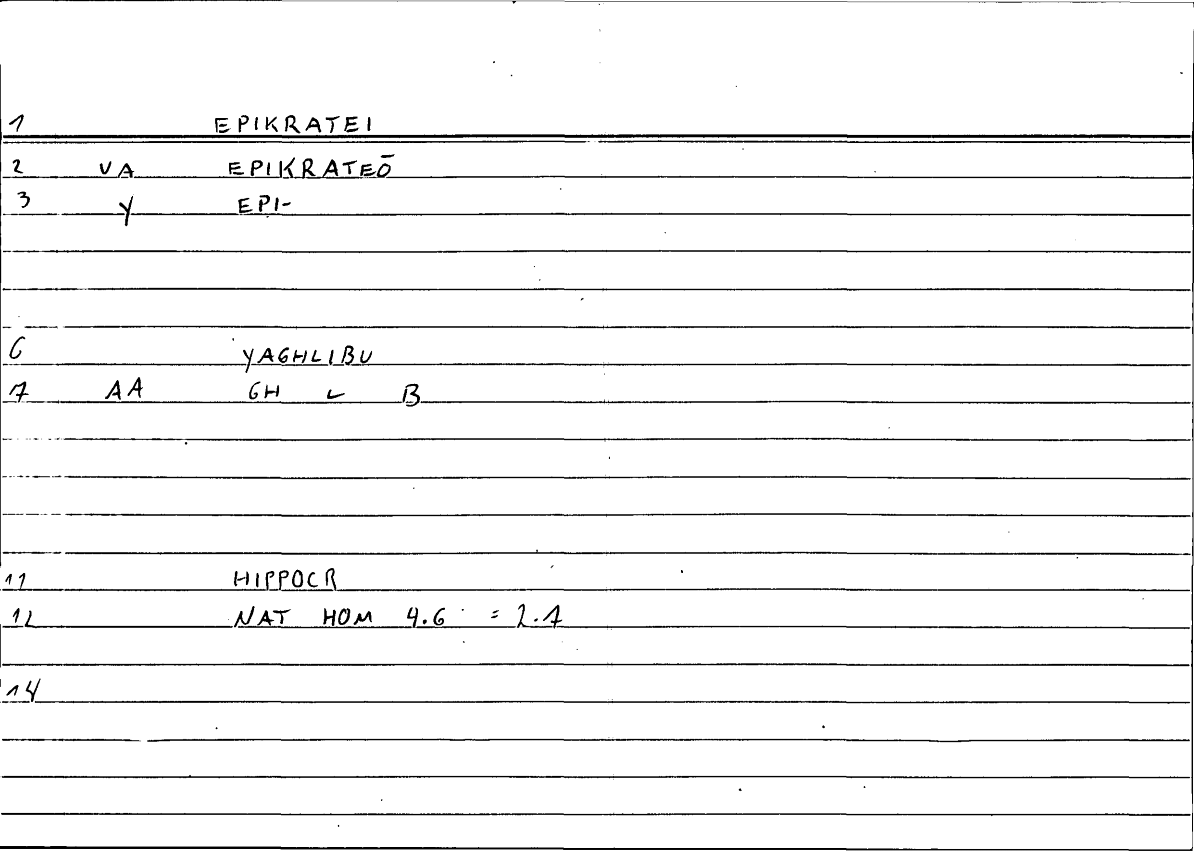 1 EPIKRATEI
2 VA EPIKRATEŌ
3 Y EPI-
6 YAGHLIBU
7 AA GH L B
11 HIPPOCR
12 NAT HOM 4.6 = 2.1
14